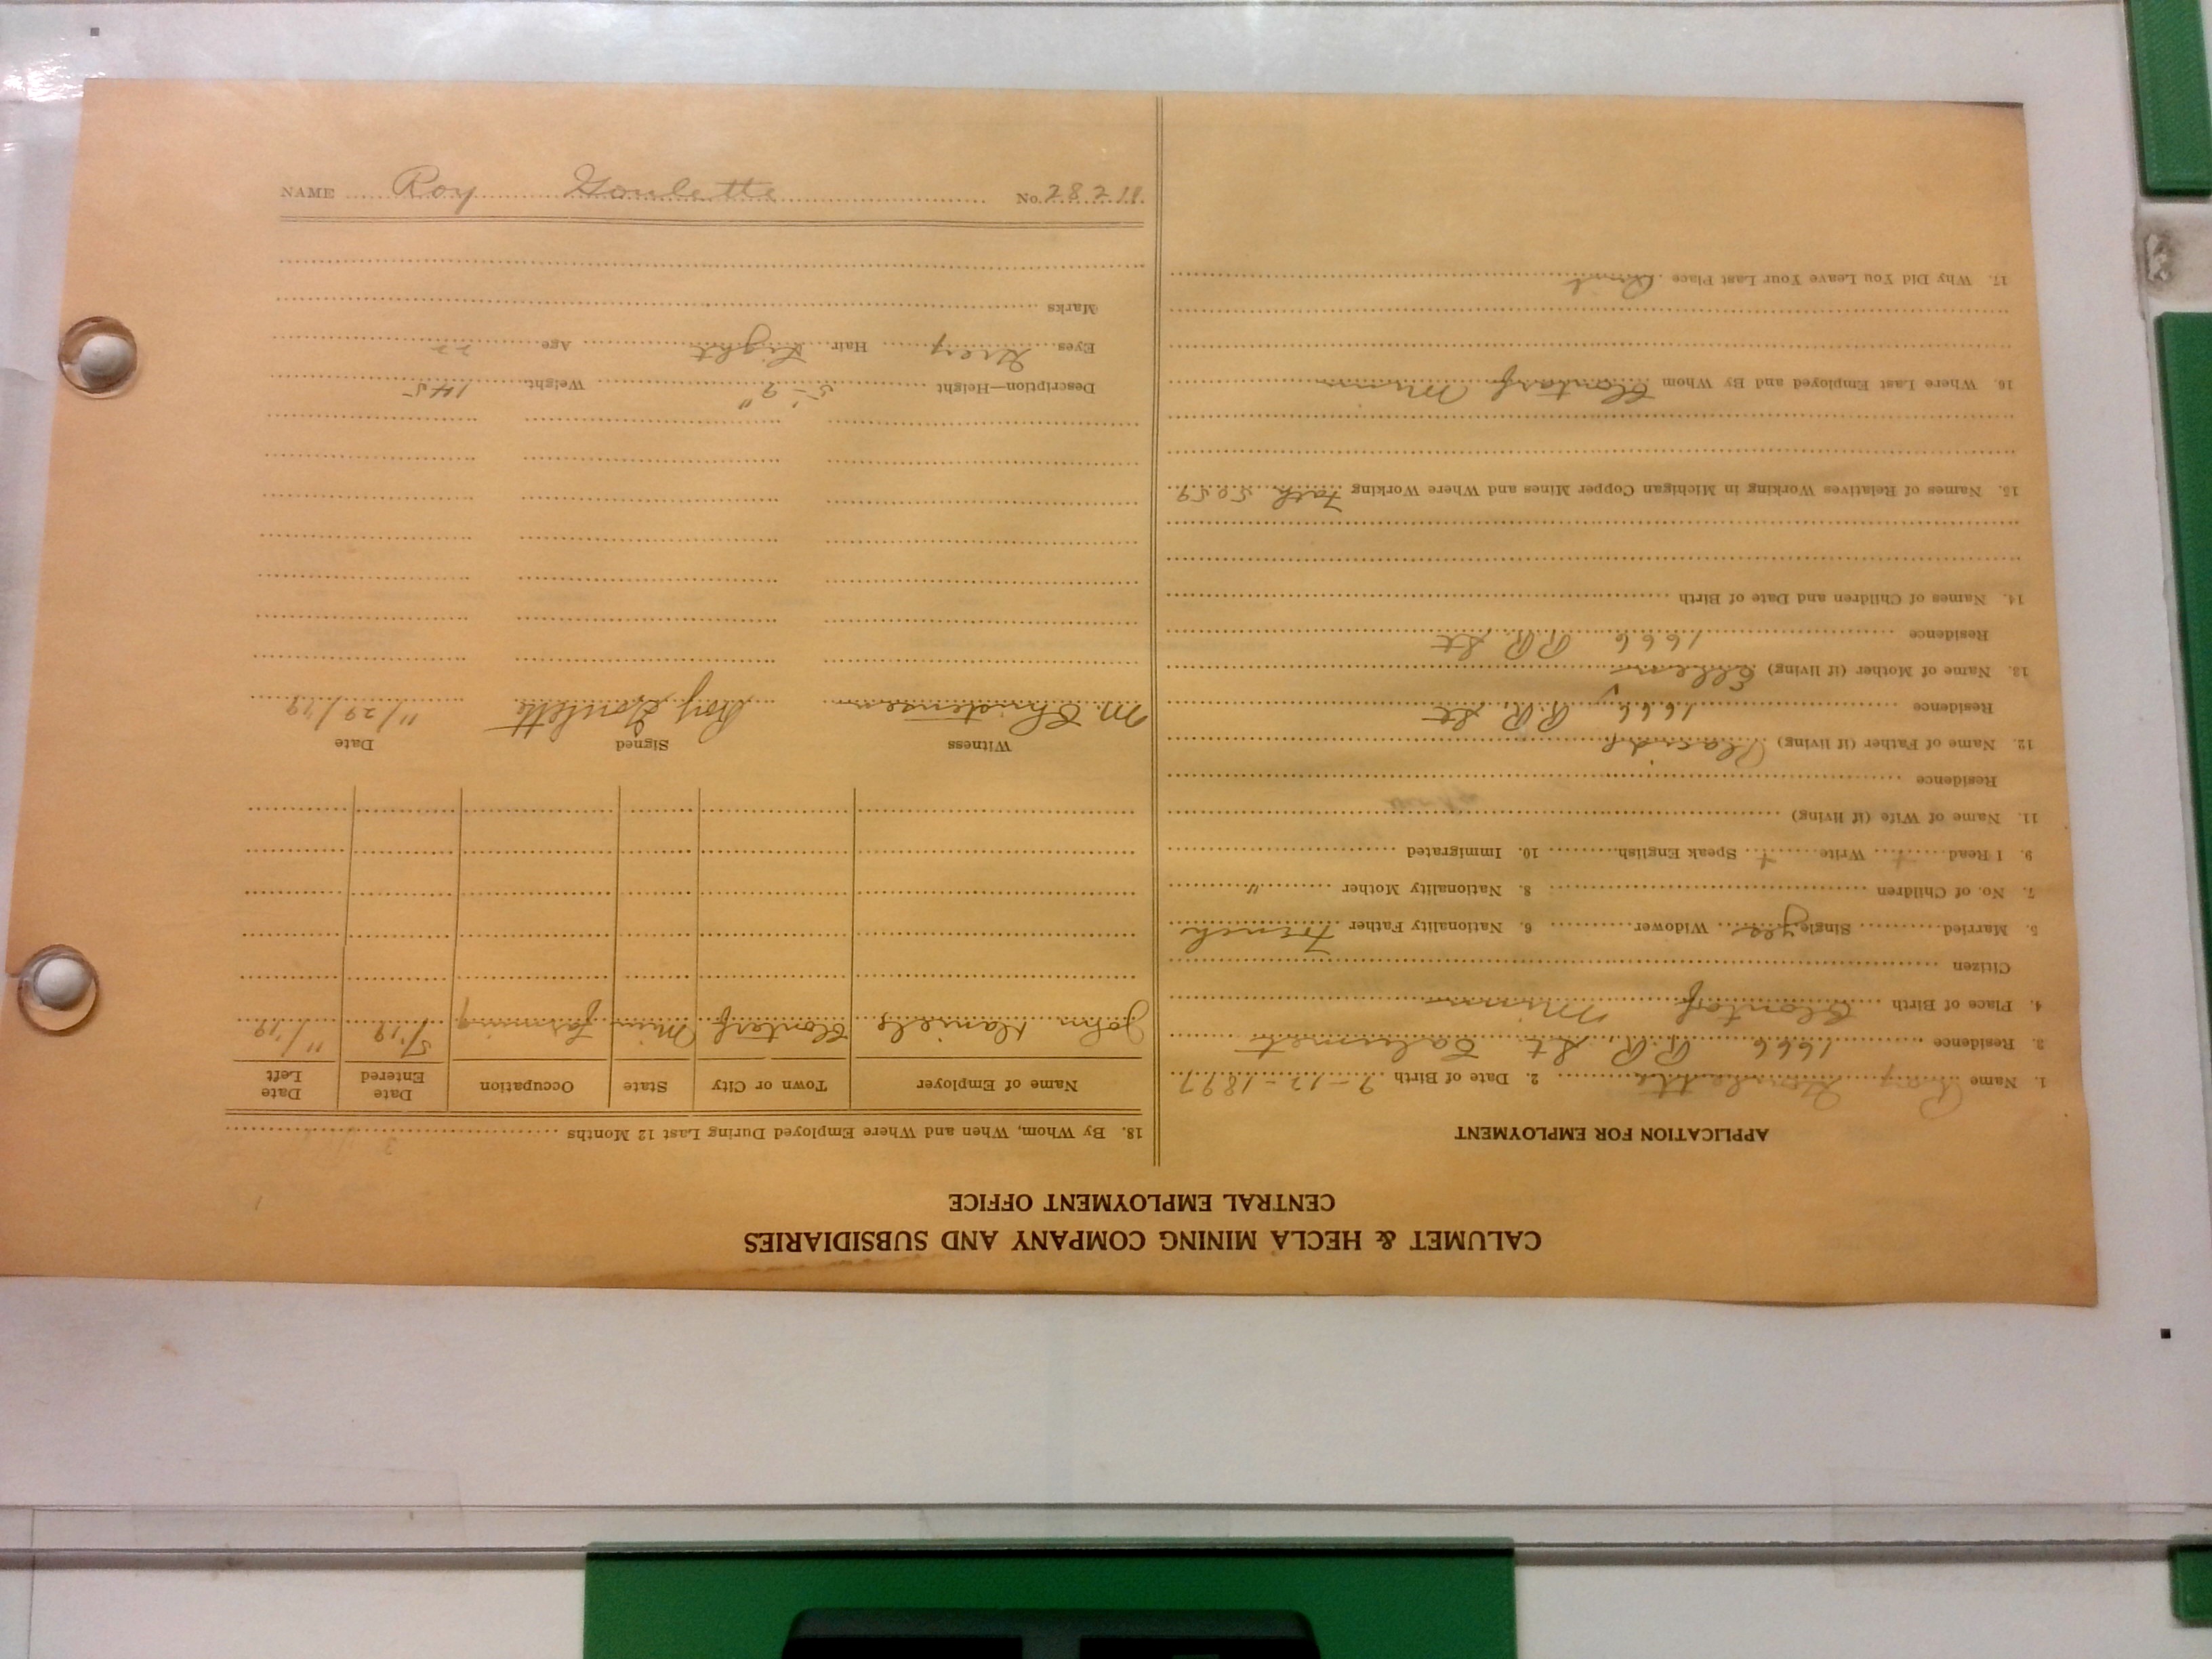 CALUMET & HECLA MINING COMPANY AND SUBSIDIARIES
CENTRAL EMPLOYMENT OFFICE
APPLICATION FOR EMPLOYMENT
1. Name Roy Goulette 2. Date of Birth 9-12-1897
3. Residence 1666 R.R. St Calumet
4. Place of Birth Clontarf Minn
Citizen
5. Married Single yes Widower 6. Nationality Father French
7. No. of Children 8. Nationality Mother "
9. I Read + Write + Speak English 10. Immigrated
11. Name of Wife (if living)
Residence
12. Name of Father (if living)
Residence 1666 R.R. St
13. Name of Mother (if living) Ellen
Residence 1666 R.R. St
14. Names of Children and Date of Birth
15. Names of Relatives Working in Michigan Copper Mines and Where Working Fath 5059
16. Where Last Employed and By Whom Clontarf Minn
17. Why Did You Leave Your Last Place
18. By Whom, When and Where Employed During Last 12 Months
Name of Employer Town or City State Occupation Date Entered Date Left
John Daniels Clontarf Minn farming 5/'19 11/'19
Witness Signed Date
M. Christensen Roy Goulette 11/29/19
Description—Height 5'-9" Weight 145
Eyes Grey Hair Light Age 22
Marks
NAME Roy Goulette No. 28211